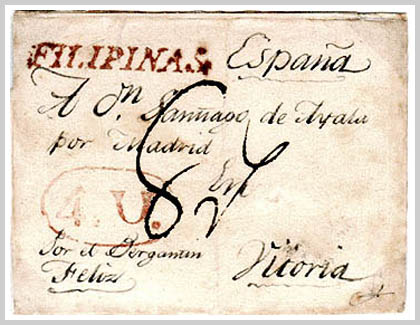 FILIPINAS España
A Dn. Santiago de Ayala
por Madrid
En
4. U.
Por el Bergantin
Feliz
Vitoria